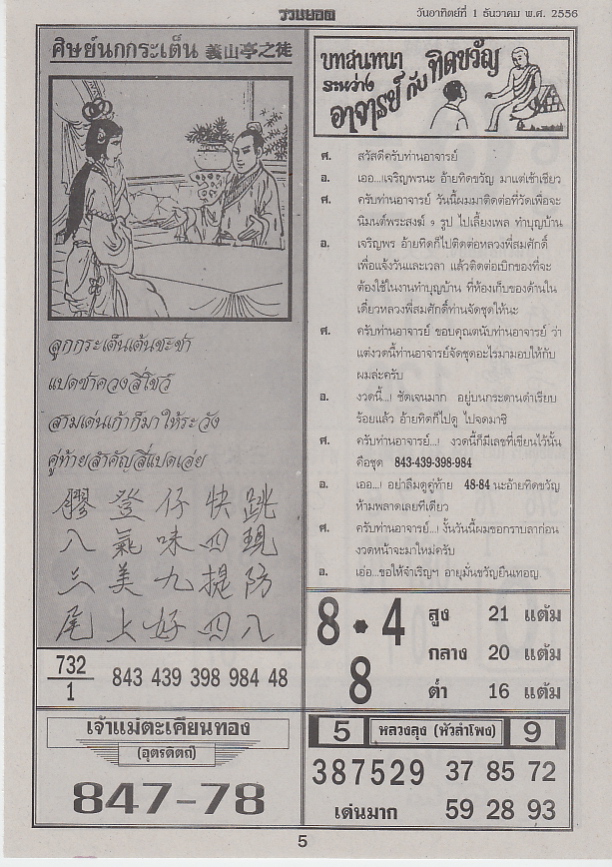 รวมยอด
วันอาทิตย์ที่ 1 ธันวาคม พ.ศ. 2556
ศิษย์นกกระเต็น 義山亭之徒
ลูกกระเด็นเต้นชะช่า
แปดซ่าควงสี่โชว์
สามเด่นเก้าก็มาให้ระวัง
คู่ท้ายสำคัญสี่แปดเอ่ย
膠登仔快跳
八氣味四現
三美九提防
尾上好四八
732
1
843 439 398 984 48
เจ้าแม่ตะเคียนทอง
(อุตรดิตถ์)
847-78
บทสนทนา
ระหว่าง
อาจารย์ กับ ทิดขวัญ
ศ. สวัสดีครับท่านอาจารย์
อ. เออ...!เจริญพรนะ อ้ายทิดขวัญ มาแต่เช้าเชียว
ศ. ครับท่านอาจารย์ วันนี้ผมมาติดต่อที่วัดเพื่อจะ
นิมนต์พระสงฆ์ ๑ รูป ไปเลี้ยงเพล ทำบุญบ้าน
อ. เจริญพร อ้ายทิดก็ไปติดต่อหลวงพี่สมศักดิ์
เพื่อแจ้งวันและเวลา แล้วติดต่อเบิกของที่จะ
ต้องใช้ในงานทำบุญบ้าน ที่ห้องเก็บของด้านใน
เดี๋ยวหลวงพี่สมศักดิ์ท่านจัดชุดให้นะ
ศ. ครับท่านอาจารย์ ขอบคุณตนับท่านอาจารย์ ว่า
แต่งวดนี้ท่านอาจารย์จัดชุดอะไรมามอบให้กับ
ผมล่ะครับ
อ. งวดนี้...! ชัดเจนมาก อยู่บนกระดานดำเรียบ
ร้อยแล้ว อ้ายทิดก็ไปดู ไปจดมาซิ
ศ. ครับท่านอาจารย์...! งวดนี้ก็มีเลขที่เขียนไว้นั้น
คือชุด 843-439-398-984
อ. เออ...! อย่าลืมดูคู่ท้าย 48-84 นะอ้ายทิดขวัญ
ห้ามพลาดเลยทีเดียว
ศ. ครับท่านอาจารย์...! งั้นวันนี้ผมขอกราบลาก่อน
งวดหน้าจะมาใหม่ครับ
อ. เอ่อ...ขอให้จำเริญฯ อายุมั่นขวัญยืนเทอญ.
8 • 4
8
สูง 21 แต้ม
กลาง 20 แต้ม
ต่ำ 16 แต้ม
5 หลวงลุง (หัวลำโพง) 9
387529 37 85 72
เด่นมาก 59 28 93
5